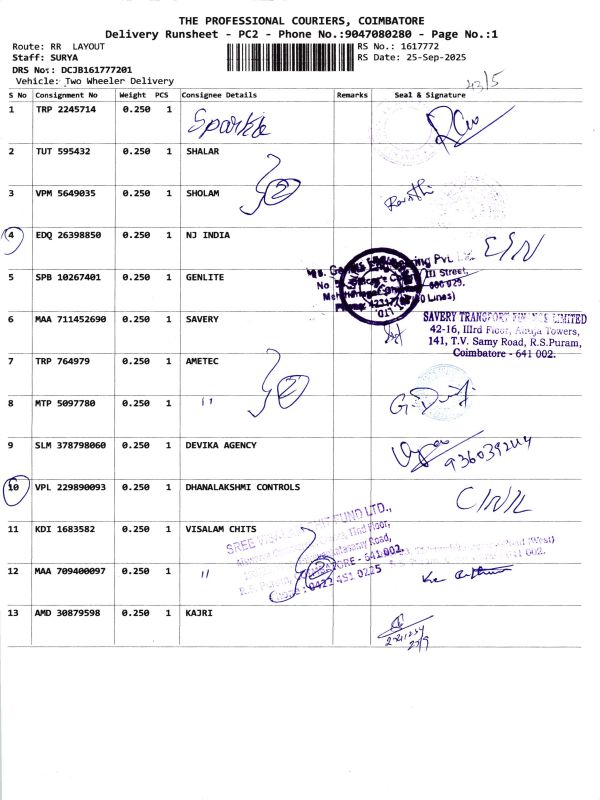 THE PROFESSIONAL COURIERS, COIMBATORE
Delivery Runsheet - PC2 - Phone No.:9047080280 - Page No.:1
Route: RR LAYOUT
RS No.: 1617772
Staff: SURYA
RS Date: 25-Sep-2025
DRS No: DCJB161777201
Vehicle: Two Wheeler Delivery
43/5
S No Consignment No Weight PCS Consignee Details Remarks Seal & Signature
1 TRP 2245714 0.250 1 Sparkle
2 TUT 595432 0.250 1 SHALAR
3 VPM 5649035 0.250 1 SHOLAM
2
4 EDQ 26398850 0.250 1 NJ INDIA
5 SPB 10267401 0.250 1 GENLITE
6 MAA 711452690 0.250 1 SAVERY
SAVERY TRANSPORT FINANCE LIMITED
42-16, IIIrd Floor, Towers,
141, T.V. Samy Road, R.S.Puram,
Coimbatore - 641 002.
7 TRP 764979 0.250 1 AMETEC
8 MTP 5097780 0.250 1 "
2
9 SLM 378798060 0.250 1 DEVIKA AGENCY
10 VPL 229890093 0.250 1 DHANALAKSHMI CONTROLS
11 KDI 1683582 0.250 1 VISALAM CHITS
SREE FUND LTD.,
12 MAA 709400097 0.250 1 "
R.S. Puram, COIMBATORE - 641 002.
Phone : 0422 451 0225
2
13 AMD 30879598 0.250 1 KAJRI